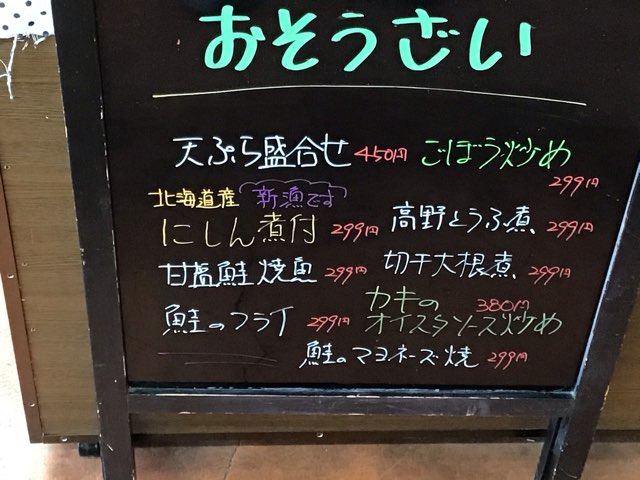 おそうざい
天ぷら盛合せ 450円
ごぼう炒め
299円
北海道産 新漁です
にしん煮付 299円
高野とうふ煮 299円
甘塩鮭焼魚 299円
切干大根煮 299円
鮭のフライ 299円
カキの 380円
オイスタソース炒め
鮭のマヨネーズ焼 299円